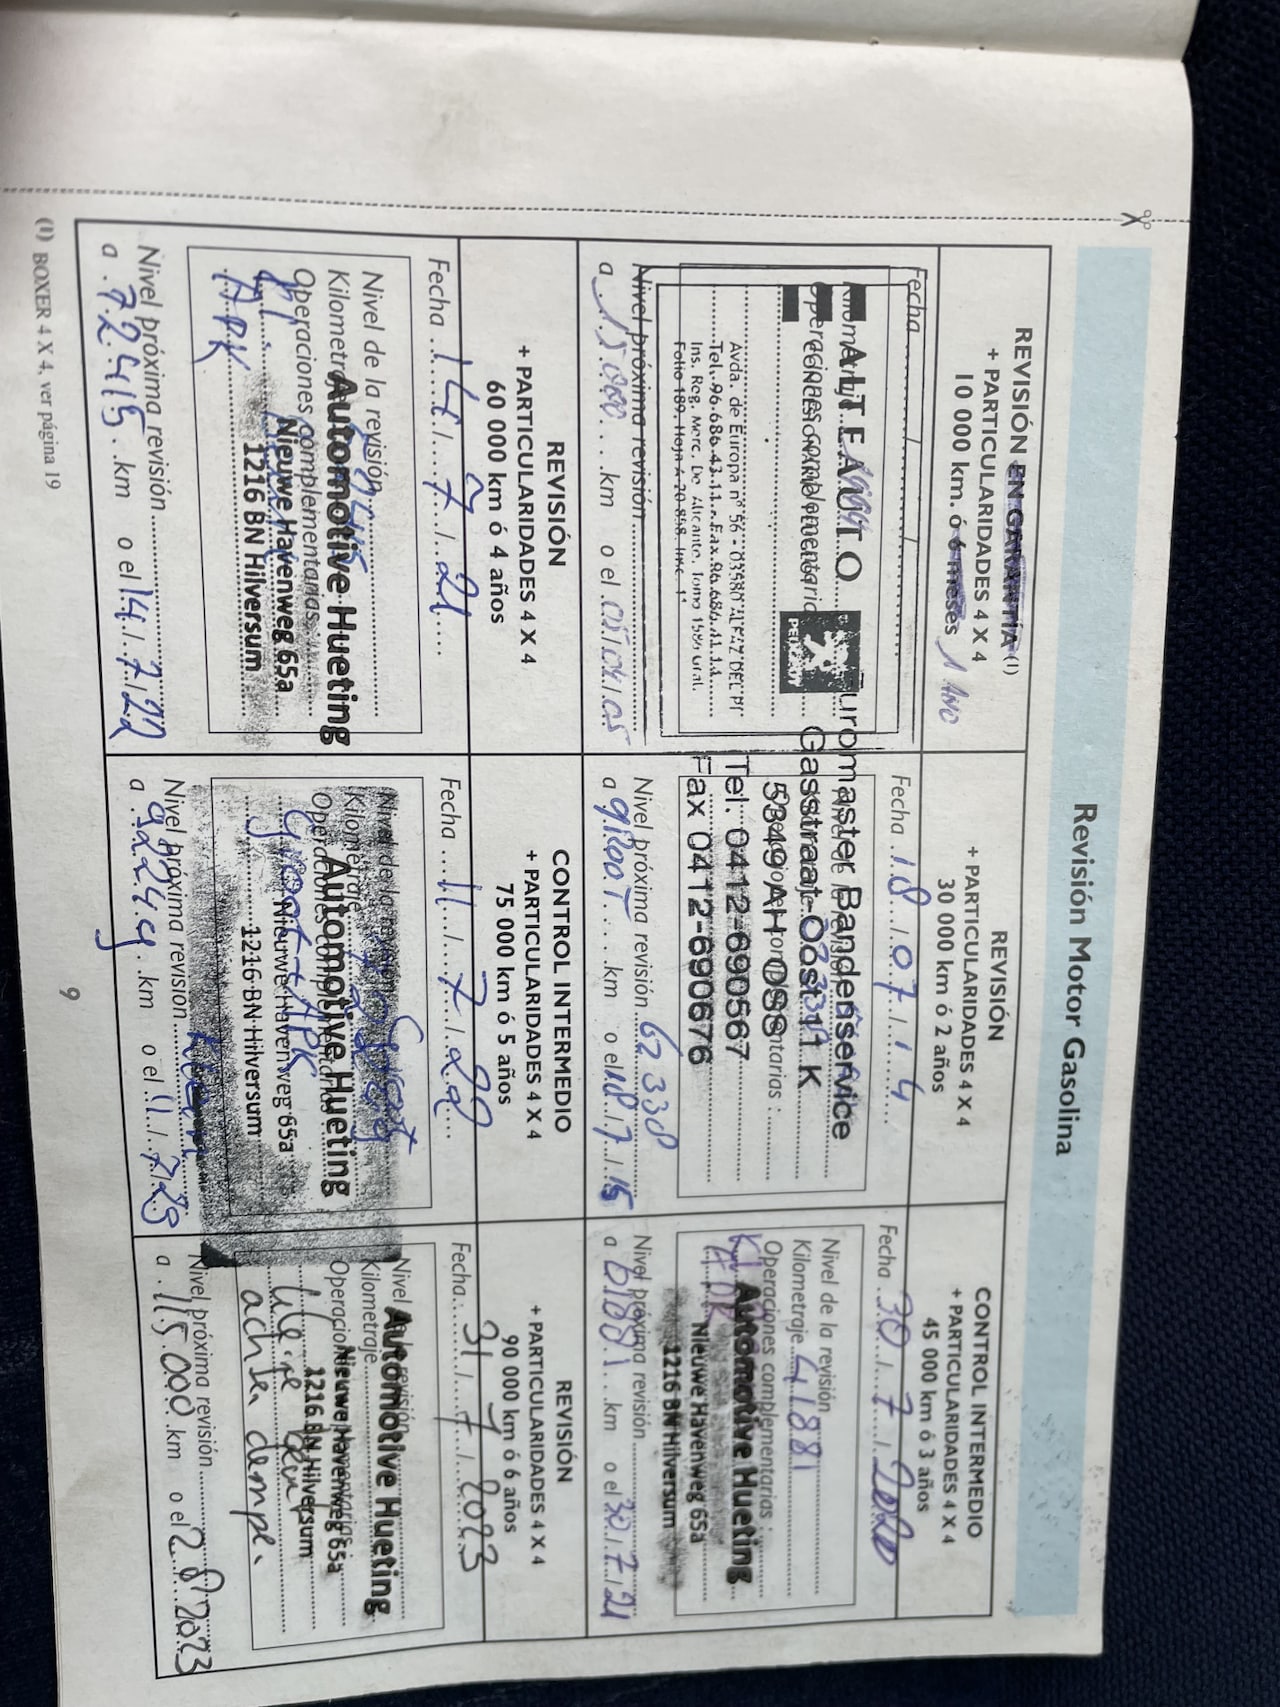 Revisión Motor Gasolina
REVISIÓN EN GARANTÍA (1)
+ PARTICULARIDADES 4 X 4
10 000 km. ó 6 meses 1 AÑO
Fecha
ALTEAUTO
CONCESIONARIO PEUGEOT
Operaciones complementarias
Avda. de Europa nº 56 - 03580 ALFAZ DEL PI
Tel. 96.686.43.11 - Fax 96.686.41.11
Ins. Reg. Merc. De Alicante, Tomo 1589 Gral.
Folio 189, Hoja A-20.848, Insc. 1ª
Nivel próxima revisión
a 15.000 km o el 05/04/05
REVISIÓN
+ PARTICULARIDADES 4 X 4
30 000 km ó 2 años
Fecha 18/07/14
Euromaster Bandenservice
Gasstraat-Oost 11 K
5349 AH OSS
Tel: 0412-690567
Fax 0412-690676
Nivel próxima revisión 62338
a km o el 18/7/15
CONTROL INTERMEDIO
+ PARTICULARIDADES 4 X 4
45 000 km ó 3 años
Fecha 30/7/2020
Nivel de la revisión
Kilometraje 41881
Operaciones complementarias :
APK
Automotive Hueting
Nieuwe Havenweg 65a
1216 BN Hilversum
Nivel próxima revisión
a 61881 km o el 30/7/21
REVISIÓN
+ PARTICULARIDADES 4 X 4
60 000 km ó 4 años
Fecha 14/7/21
Nivel de la revisión
Kilometraje
Operaciones complementarias
Automotive Hueting
Nieuwe Havenweg 65a
1216 BN Hilversum
APK
Nivel próxima revisión
a 72415 km o el 14/7/22
CONTROL INTERMEDIO
+ PARTICULARIDADES 4 X 4
75 000 km ó 5 años
Fecha 11/7/22
Nivel de la revisión
Kilometraje
Operaciones complementarias
Automotive Hueting
Groot + APK
Nieuwe Havenweg 65a
1216 BN Hilversum
Nivel próxima revisión
a 92244 km o el 11/7/23
REVISIÓN
+ PARTICULARIDADES 4 X 4
90 000 km ó 6 años
Fecha 31/7/2023
Nivel de la revisión
Automotive Hueting
Kilometraje
Operaciones complementarias
Nieuwe Havenweg 65a
1216 BN Hilversum
Kleine beurt
achter demper
Nivel próxima revisión
a 115.000 km o el 2 8 2023
(1) BOXER 4 X 4, ver página 19
9